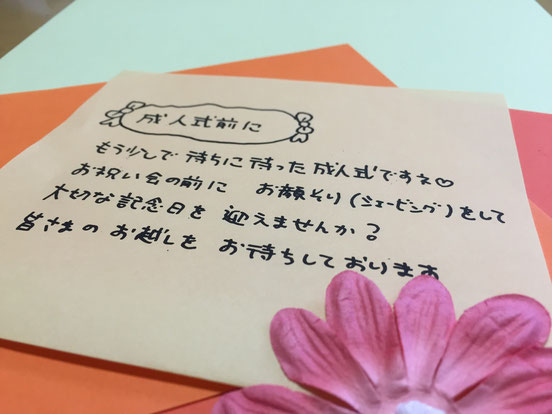 成人式前に
もう少しで 待ちに待った成人式ですネ♡
お祝い会の前に お顔そり(シェービング)をして
大切な記念日を 迎えませんか?
皆さまの お越しを お待ちしております